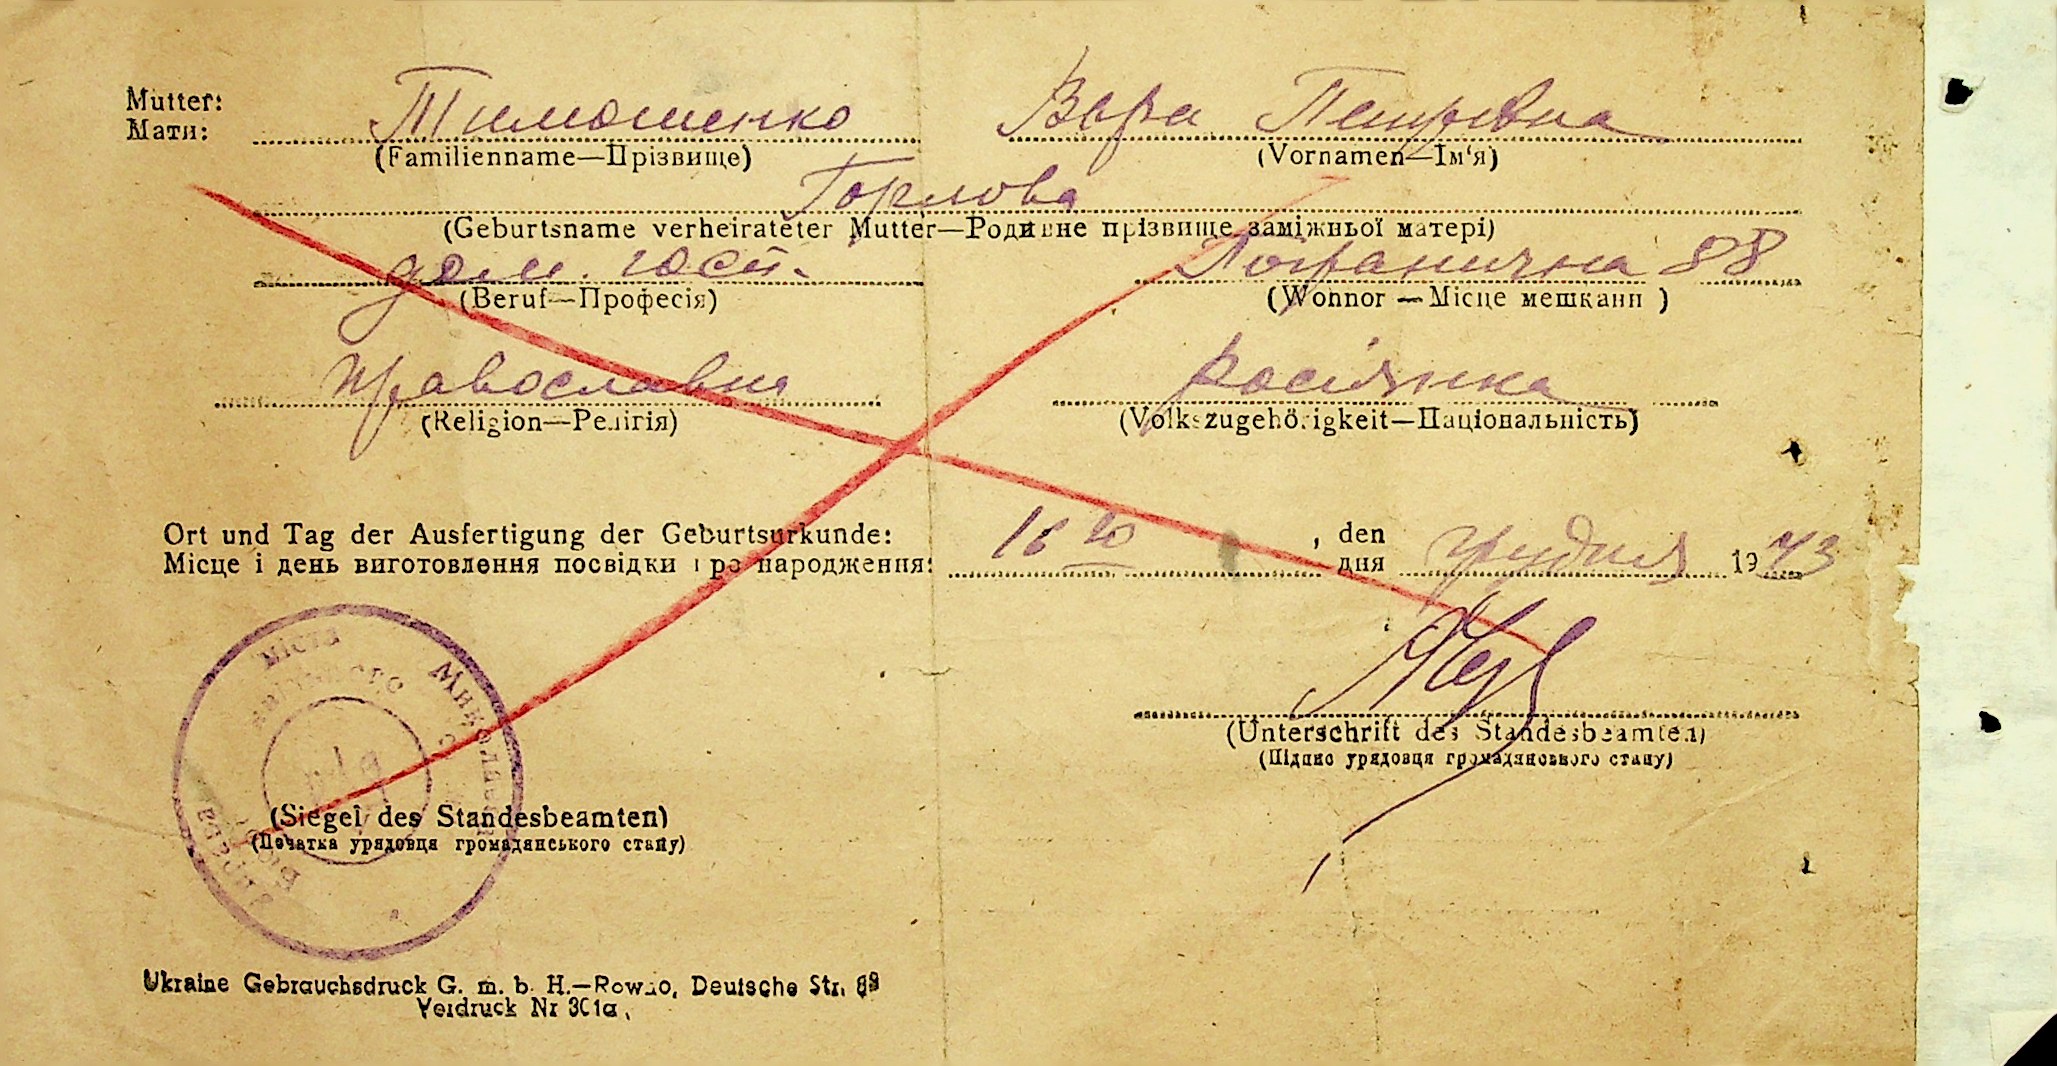 Mutter:
Мати:
Тимошенко Вера Петровна
(Familienname—Прізвище) (Vornamen—Ім'я)
Горлова
(Geburtsname verheirateter Mutter—Родивне прізвище заміжньої матері)
дом. госп. Погранична 88
(Beruf—Професія) (Wohnor — Місце мешканн )
православна росіянка
(Religion—Релігія) (Volkszugehörigkeit—Національність)
Ort und Tag der Ausfertigung der Geburtsurkunde: 16 го , den грудня 1943
Місце і день виготовлення посвідки про народження: дня
міста Миколаєва
(Unterschrift des Standesbeamten)
(Підпис урядовця громадяновього стану)
(Siegel des Standesbeamten)
(Початка урядовця громадянського стану)
Ukraine Gebrauchsdruck G. m. b. H.—Rowno, Deutsche Str. 89
Vordruck Nr 301a.